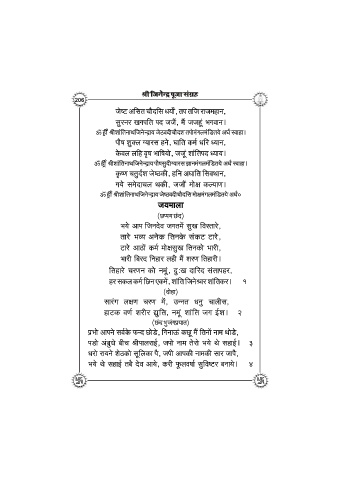 श्री जिनेन्द्र पूजा संग्रह
206
जेष्ट असित चौदसि धर्यों, तप तजि राजमहान,
सुरनर खगपति पद जजैं, मैं जजहूं भगवान।
ॐ ह्रीं श्रीशांतिनाथजिनेन्द्राय जेठवदीचौदश तपोमंगलमंडिताये अर्घं स्वाहा।
पौष शुक्ल ग्यारस हने, घाति कर्म धरि ध्यान,
केवल लहि वृष भाषियो, जजूं शांतिपद ध्याय।
ॐ ह्रीं श्रीशांतिनाथजिनेन्द्राय पौषसुदीग्यारस ज्ञानमंगलमंडिताये अर्घं स्वाहा।
कृष्ण चतुर्दश जेष्ठकी, हनि अघाति सिवथान,
गये समेदाचल थकी, जजों मोक्ष कल्याण।
ॐ ह्रीं श्रीशांतिनाथजिनेन्द्राय जेष्ठवदीचौदसि मोक्षमंगलमंडिताये अर्घं०
जयमाला
(छप्पय छंद)
भये आप जिनदेव जगतमें सुख विस्तारे,
तारे भव्य अनेक तिनके संकट टारे,
टारे आठों कर्म मोक्षसुख तिनको भारी,
भारी बिरद निहार लही मैं शरण तिहारी।
तिहारे चरणन को नमूं, दुःख दारिद संतापहर,
हर सकल कर्म छिन एकमें, शांति जिनेश्वर शांतिकर। १
(दोहा)
सारंग लक्षण चरण में, उन्नत धनु चालीस,
हाटक वर्ण शरीर द्युति, नमूं शांति जग ईश। २
(छंद भुजंगप्रयात)
प्रभो आपने सर्वके फन्द छोडे, गिनाऊं कछू मैं तिनों नाम थोडे,
पडो अंबुधे बीच श्रीपालराई, जपो नाम तेरो भये थे सहाई। ३
धरो रायने शेठको सूलिका पै, जपी आपकी नामकी सार जापै,
भये थे सहाई तबै देव आये, करी फूलवर्षा सुविष्टर बनाये। ४